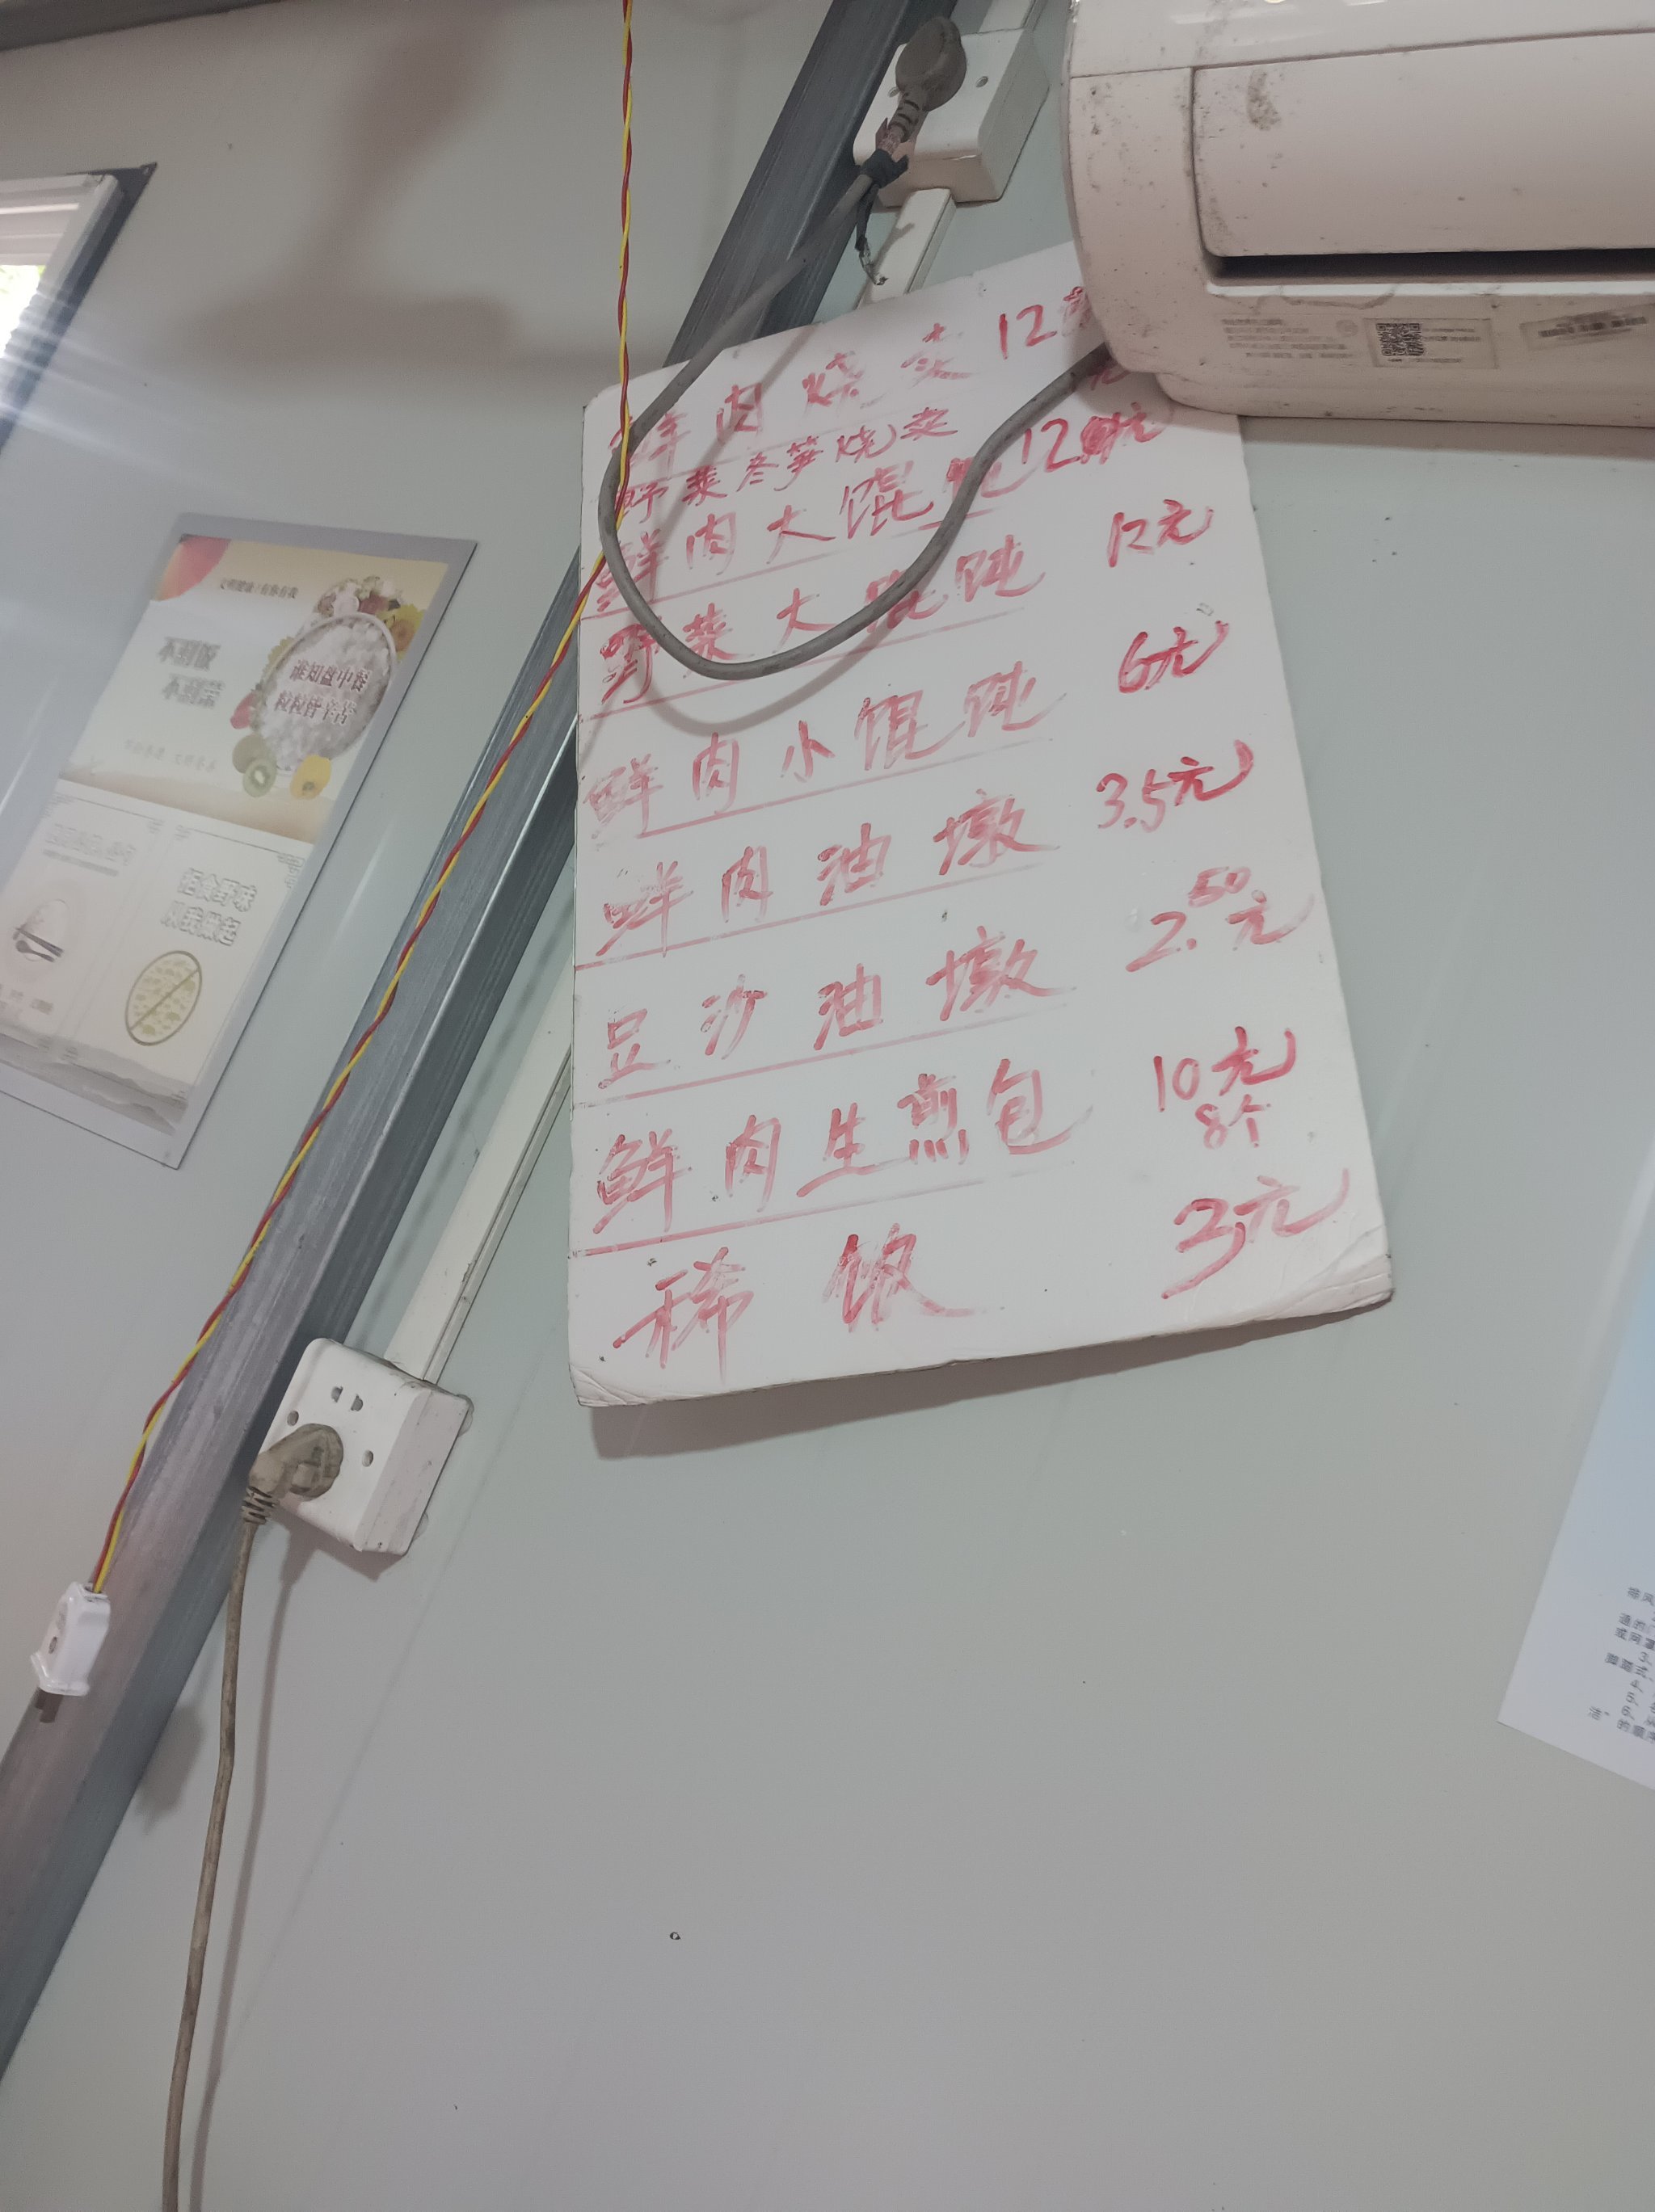 鲜肉烧卖 12
野菜冬笋烧卖
鲜肉大馄饨 12元
野菜大馄饨 12元
鲜肉小馄饨 6元
鲜肉油墩 3.5元
豆沙油墩 2.50元
鲜肉生煎包 10元
8个
稀饭 3元
文明健康 有你有我
不剩饭
不剩菜
谁知盘中餐
粒粒皆辛苦
拒食野味
从我做起